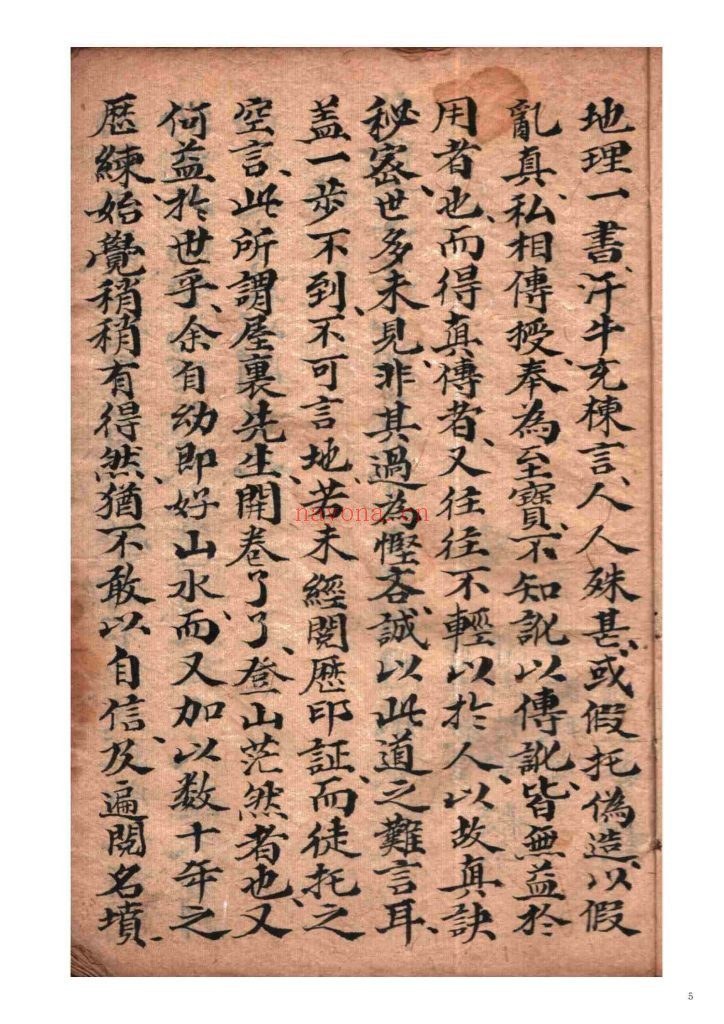 地理一書、汗牛充棟言、人人殊甚、或假托偽造、以假
亂真、私相傳授、奉為至寶、不知訛以傳訛、皆無益於
用者也、而得真傳者、又往往不輕以於人、以故真訣
秘密、世多未見、非其過為慳吝、誠以此道之難言耳、
盖一步不到、不可言地、若未經閱歷印証、而徒托之
空言、此所謂屋裏先生、開卷了了、登山茫然者也、又
何益於世乎、余自幼即好山水、而又加以数十年之
歷練、始覺稍稍有得、然猶不敢以自信、及遍閱名墳、
nayona.cn
5